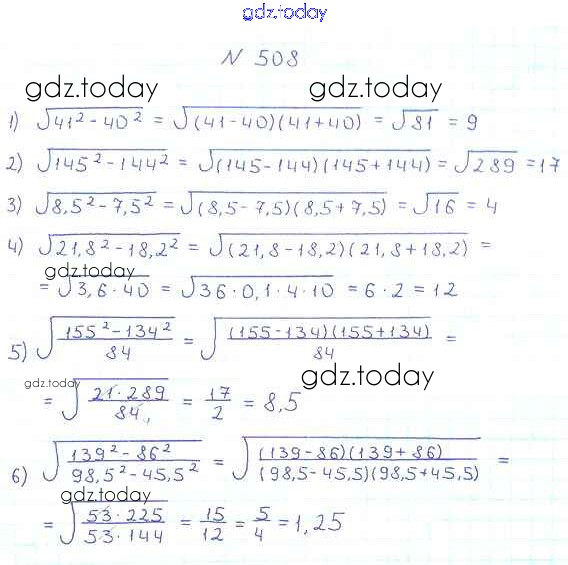 gdz.today
N 508
gdz.today gdz.today
1) √41² - 40² = √(41-40)(41+40) = √81 = 9
2) √145² - 144² = √(145-144)(145+144) = √289 = 17
3) √8,5² - 7,5² = √(8,5-7,5)(8,5+7,5) = √16 = 4
4) √21,8² - 18,2² = √(21,8-18,2)(21,8+18,2) =
gdz.today
= √3,6·40 = √36·0,1·4·10 = 6·2 = 12
5) √(155² - 134²)/84 = √((155-134)(155+134))/84 =
gdz.today gdz.today
= √(21·289)/84 = 17/2 = 8,5
6) √(139² - 86²)/(98,5² - 45,5²) = √((139-86)(139+86))/((98,5-45,5)(98,5+45,5)) =
gdz.today
= √(53·225)/(53·144) = 15/12 = 5/4 = 1,25